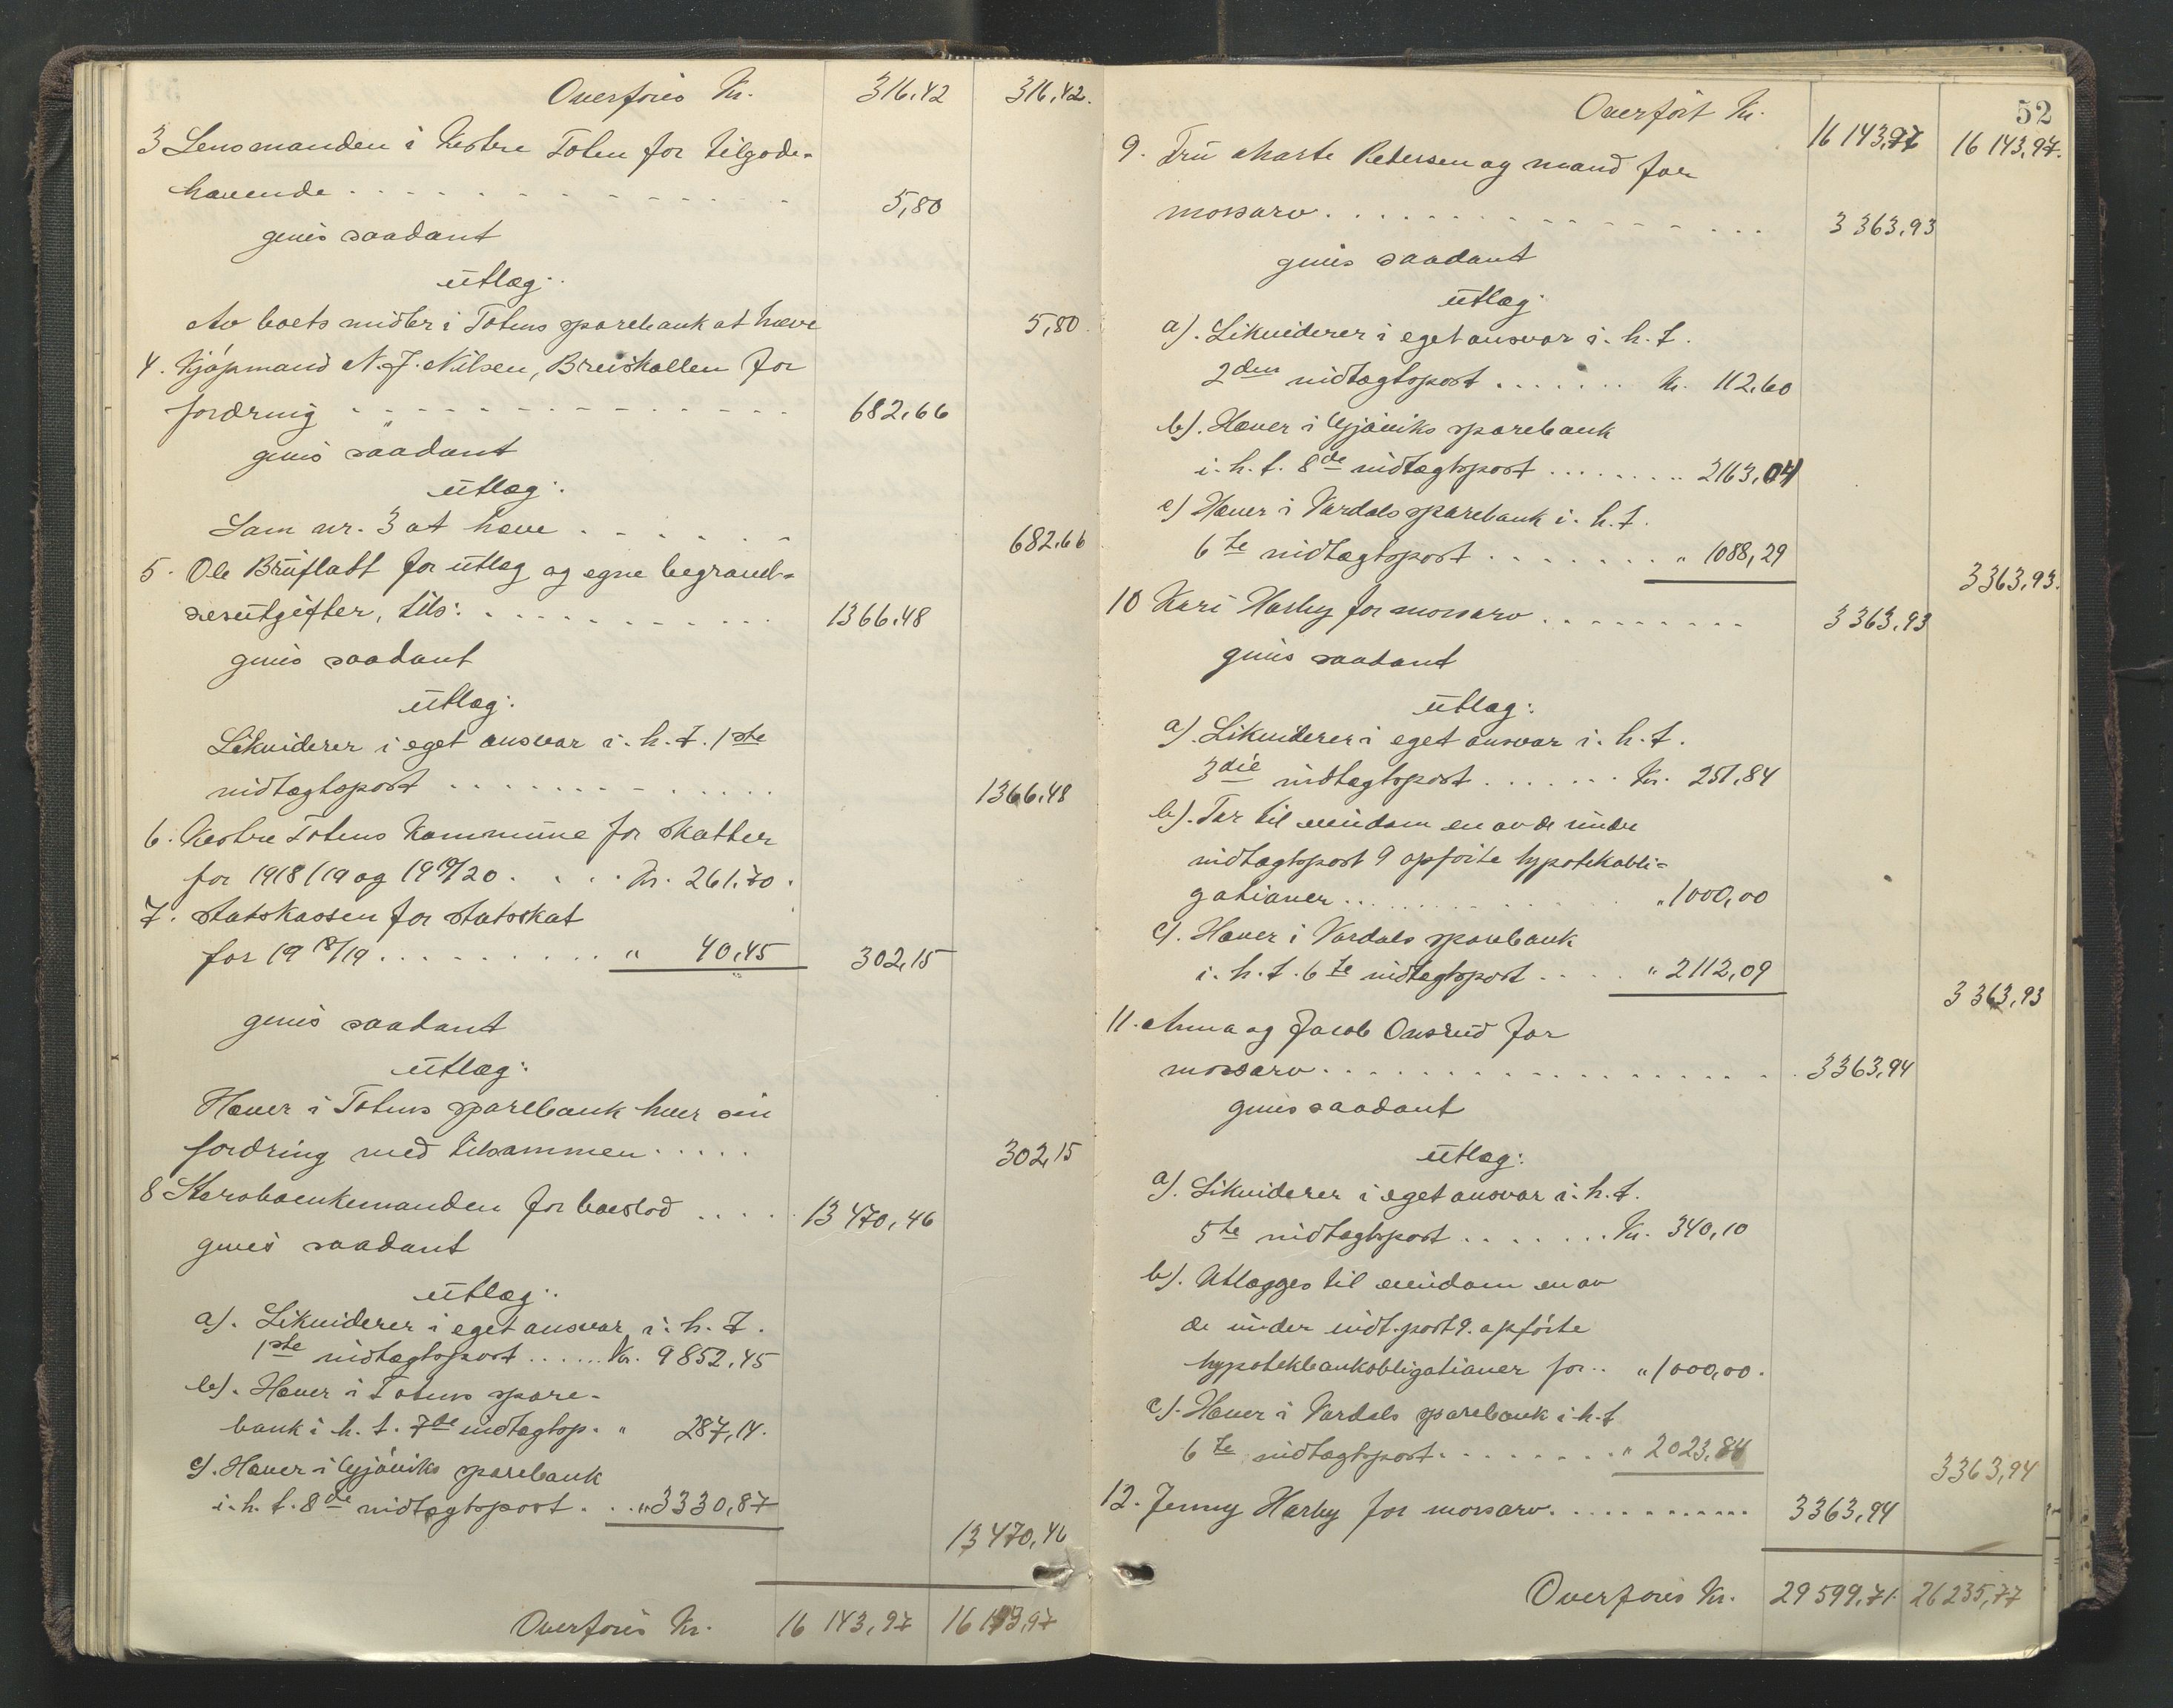 Overføres Kr. 316,42 316,42.
3 Lensmanden i Vestre Toten for tilgode-
havende . . . . . . . . . . . . 5,80
gives saadant
utlæg:
Av boets midler i Totens sparebank at hæve 5,80.
4. Kjøpmand N. J. Nilsen, Breiskallen for
fordring - - - - - - - - - - - - 682,66
gives saadant
utlæg:
Som nr. 3 at hæve . . . . . . 682,66
5. Ole Bruflatt for utlæg og egne begravel-
sesutgifter, tils: . . . . . . . . . . . 1366,48
gives saadant
utlæg:
Likviderer i eget ansvar i. h. t. 1ste
indtægtspost . . . . . . . . . . . . 1366,48
6. Vestre Totens Kommune for skatter
for 1918/19 og 1919/20 . . . . Kr. 261.70.
7. Statskassen for statsskat
for 1918/19 . . . . . . . . . . " 40,45 302,15
gives saadant
utlæg:
Hæver i Totens sparebank hver sin
fordring med tilsammen . . . . . 302,15
8 Skarsboenkemanden for boeslod . . . . . 13 470,46
gives saadant
utlæg:
a). Likviderer i eget ansvar i. h. t.
1ste indtægtspost . . . . . . Kr. 9852,45
b). Hæver i Totens spare-
bank i h. t. 7de indtægtsp. " 287,14.
c). Hæver i Gjøviks sparebank
i. h. t. 8de indtægtspost . . . " 3330,87
13 470,46
Overføres Kr. 16 143,97 16 143,97
52
Overført Kr. 16 143,97 16 143,97.
9. Fru Marte Pedersen og mand for
morsarv . . . . . . . . . . . . . . . 3 363,93
gives saadant
utlæg:
a). Likviderer i eget ansvar i. h. t.
2den indtægtspost . . . . . . . Kr. 112,60
b). Hæver i Gjøviks sparebank
i. h. t. 8de indtægtspost . . . . . . . . . 2163,04
c) Hæver i Vardals sparebank i. h. t.
6te indtægtspost . . . . . . . . " 1088,29
3363,93.
10 Kari Harby for morsarv . . . . . . . . . 3 363,93
gives saadant
utlæg:
a). Likviderer i eget ansvar i. h. t.
3die indtægtspost . . . . . . Kr. 251,84
b). Tar til eiendom en av de under
indtægtspost 9 opførte hypotekobli-
gationer . . . . . . . . . . . . . " 1000,00
c). Hæver i Vardals sparebank
i. h. t. 6te indtægtspost . . . . " 2112,09
3 363,93
11. Anna og Jacob Onsrud for
morsarv . . . . . . . . . . . . . . . . . . . 3363,94
gives saadant
utlæg:
a). Likviderer i eget ansvar i. h. t.
5te indtægtspost . . . . . . . . Kr. 340,10
b). Utlægges til eiendom en av
de under indt. post 9. opførte
hypotekbankobligationer for . . " 1000,00.
c). Hæver i Vardals sparebank i. h. t
6te indtægtspost . . . . . . . . " 2023,84
3363,94
12. Jenny Harby for morsarv. . . . . . . . . . . . 3363,94
Overføres Kr. 29 599,71. 26 235,77